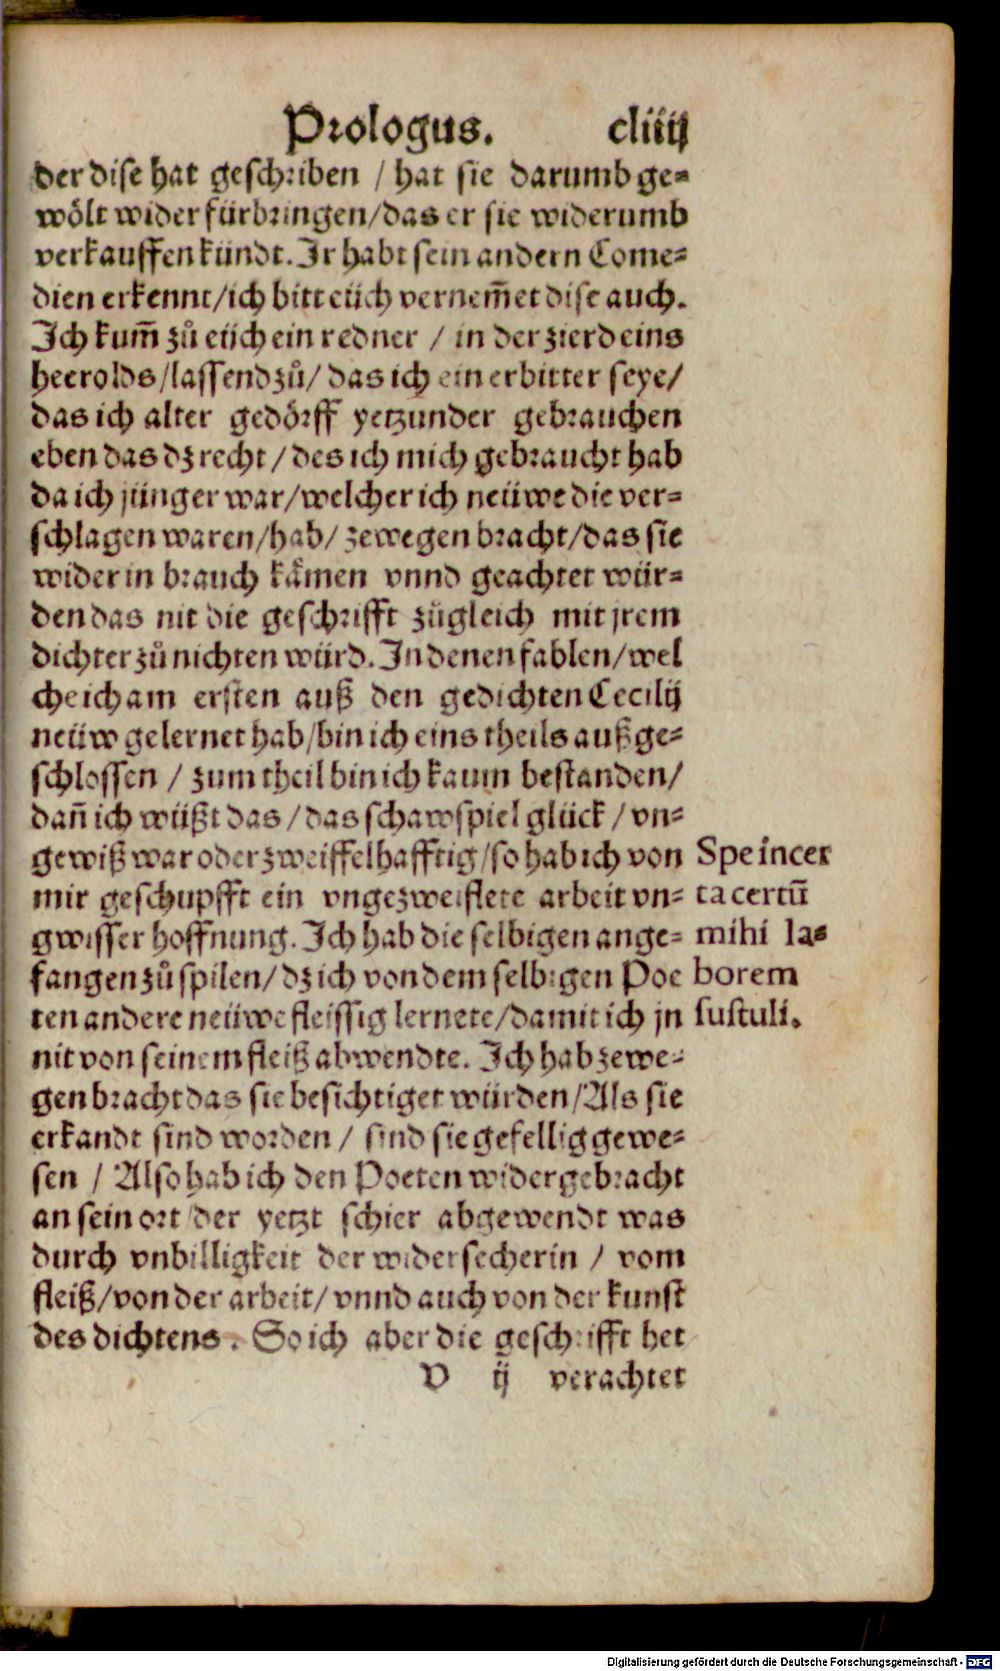 Prologus. cliiij
der dise hat geschriben / hat sie darumb ge-
wölt wider fürbringen/das er sie widerumb
verkauffen kündt. Ir habt sein andern Come-
dien erkennt/ich bitt eüch vernem̃et dise auch.
Ich kum̃ zů eüch ein redner / in der zierd eins
heerolds/lassend zů/ das ich ein erbitter seye/
das ich alter gedörff yetzunder gebrauchen
eben das dz recht / des ich mich gebraucht hab
da ich jünger war/welcher ich neüwe die ver-
schlagen waren/hab/ zewegen bracht/das sie
wider in brauch kämen vnnd geachtet wür-
den das nit die geschrifft zůgleich mit jrem
dichter zů nichten würd. In denen fablen/wel
che ich am ersten auß den gedichten Cecilij
neüw gelernet hab/bin ich eins theils außge-
schlossen / zum theil bin ich kaum bestanden/
dañ ich wüßt das / das schawspiel glück / vn-
gewiß war oder zweiffelhafftig/so hab ich von
mir geschupfft ein vngezweiflete arbeit vn-
gwisser hoffnung. Ich hab die selbigen ange-
fangen zů spilen/ dz ich von dem selbigen Poe
ten andere neüwe fleissig lernete/damit ich jn
nit von seinem fleiß abwendte. Ich hab zewe-
gen bracht das sie besichtiget würden/Als sie
erkandt sind worden / sind sie gefellig gewe-
sen / Also hab ich den Poeten widergebracht
an sein ort/der yetzt schier abgewendt was
durch vnbilligkeit der widersecherin / vom
fleiß/von der arbeit/ vnnd auch von der kunst
des dichtens. So ich aber die geschrifft het
V ij verachtet
Spe incer
ta certū
mihi la-
borem
sustuli.
Digitalisierung gefördert durch die Deutsche Forschungsgemeinschaft - DFG